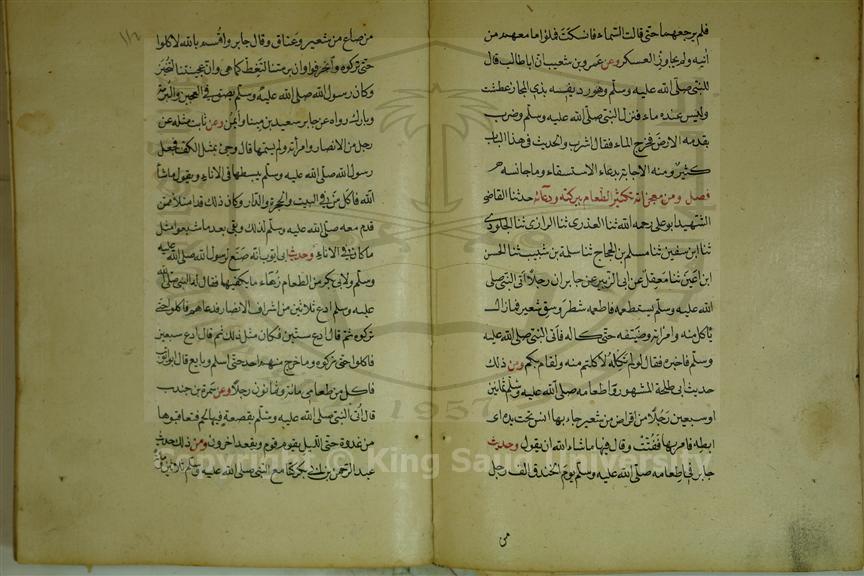 فلم يرجعهما حتى قالت السماء فانسكبت فملؤا ما معهم من
آنيه ولم يجاوز العسكر وعن عمرو بن شعيب ان اباطالب قال
للنبى صلى الله عليه وسلم وهو رديفه بذى المجاز عطشت
وليس عنده ماء فنزل النبى صلى الله عليه وسلم وضرب
بقدمه الارض فخرج الماء فقال اشرب والحديث فى هذا الباب
كثير ومنه الاجابة بدعاء الاستسقاء وما جانسه
فصل ومن معجزاته تكثير الطعام ببركته ودعائه حدثنا القاضى
الشهيد ابو على رحمه الله ثنا العذرى ثنا الرازى ثنا الجلودى
ثنا ابن سفين ثنا مسلم بن الحجاج ثنا سلمة بن شبيب ثنا الحسن
ابن اعين ثنا معقل عن ابى الزبير عن جابر ان رجلا اتى النبى صلى
الله عليه وسلم يستطعمه فاطعمه شطر وسق شعير فما زال
يأكل منه وامراته وضيفه حتى كاله فاتى النبى صلى الله عليه
وسلم فاخبره فقال لو لم تكله لاكلتم منه ولقام بكم ومن ذلك
حديث ابى طلحة المشهور واطعامه صلى الله عليه وسلم ثمانين
او سبعين رجلا من اقراص من شعير جاء بها انس تحت يده اى
ابطه فامر بها ففتت وقال فيها ما شاء الله ان يقول وحديث
جابر فى اطعامه صلى الله عليه وسلم يوم الخندق الف رجل
من
من صاع من شعير وعناق وقال جابر واقسم بالله لاكلوا
حتى تركوه وانحرفوا وان برمتنا لتغط كما هى وان عجيننا ليخبز
وكان رسول الله صلى الله عليه وسلم بصق فى العجين والبرمة
وبارك رواه عن جابر سعيد بن ميناء وايمن وعن ثابت مثله عن
رجل من الانصار وامراته ولم يسمها قال وجئ بمثل الكف فجعل
رسول الله صلى الله عليه وسلم يبسطها فى الاناء ويقول ما شاء
الله فاكل من فى البيت والحجرة والدار وكان ذلك قد امتلأ ممن
قدم معه صلى الله عليه وسلم لذلك وبقى بعد ما شبعوا مثل
ما كان فى الاناء وحديث ابى ايوب انه صنع لرسول الله صلى الله عليه
وسلم ولابى بكر من الطعام زهاء ما يكفيهما فقال له النبى صلى الله
عليه وسلم ادع ثلاثين من اشراف الانصار فدعاهم فاكلوا حتى
تركوه ثم قال ادع ستين فكان مثل ذلك ثم قال ادع سبعين
فاكلوا حتى تركوه وما خرج منهم احد حتى اسلم وبايع قال ابو ايوب
فاكل من طعامى مائة وثمانون رجلا وعن سمرة بن جندب
قال اتى النبى صلى الله عليه وسلم بقصعة فيها لحم فتعاقبوها
من غدوة حتى الليل يقوم قوم ويقعد آخرون ومن ذلك حديث
عبد الرحمن بن ابى بكر كنا مع النبى صلى الله عليه وسلم ثلاثين ومائة
1957
Copyright © King Saud University